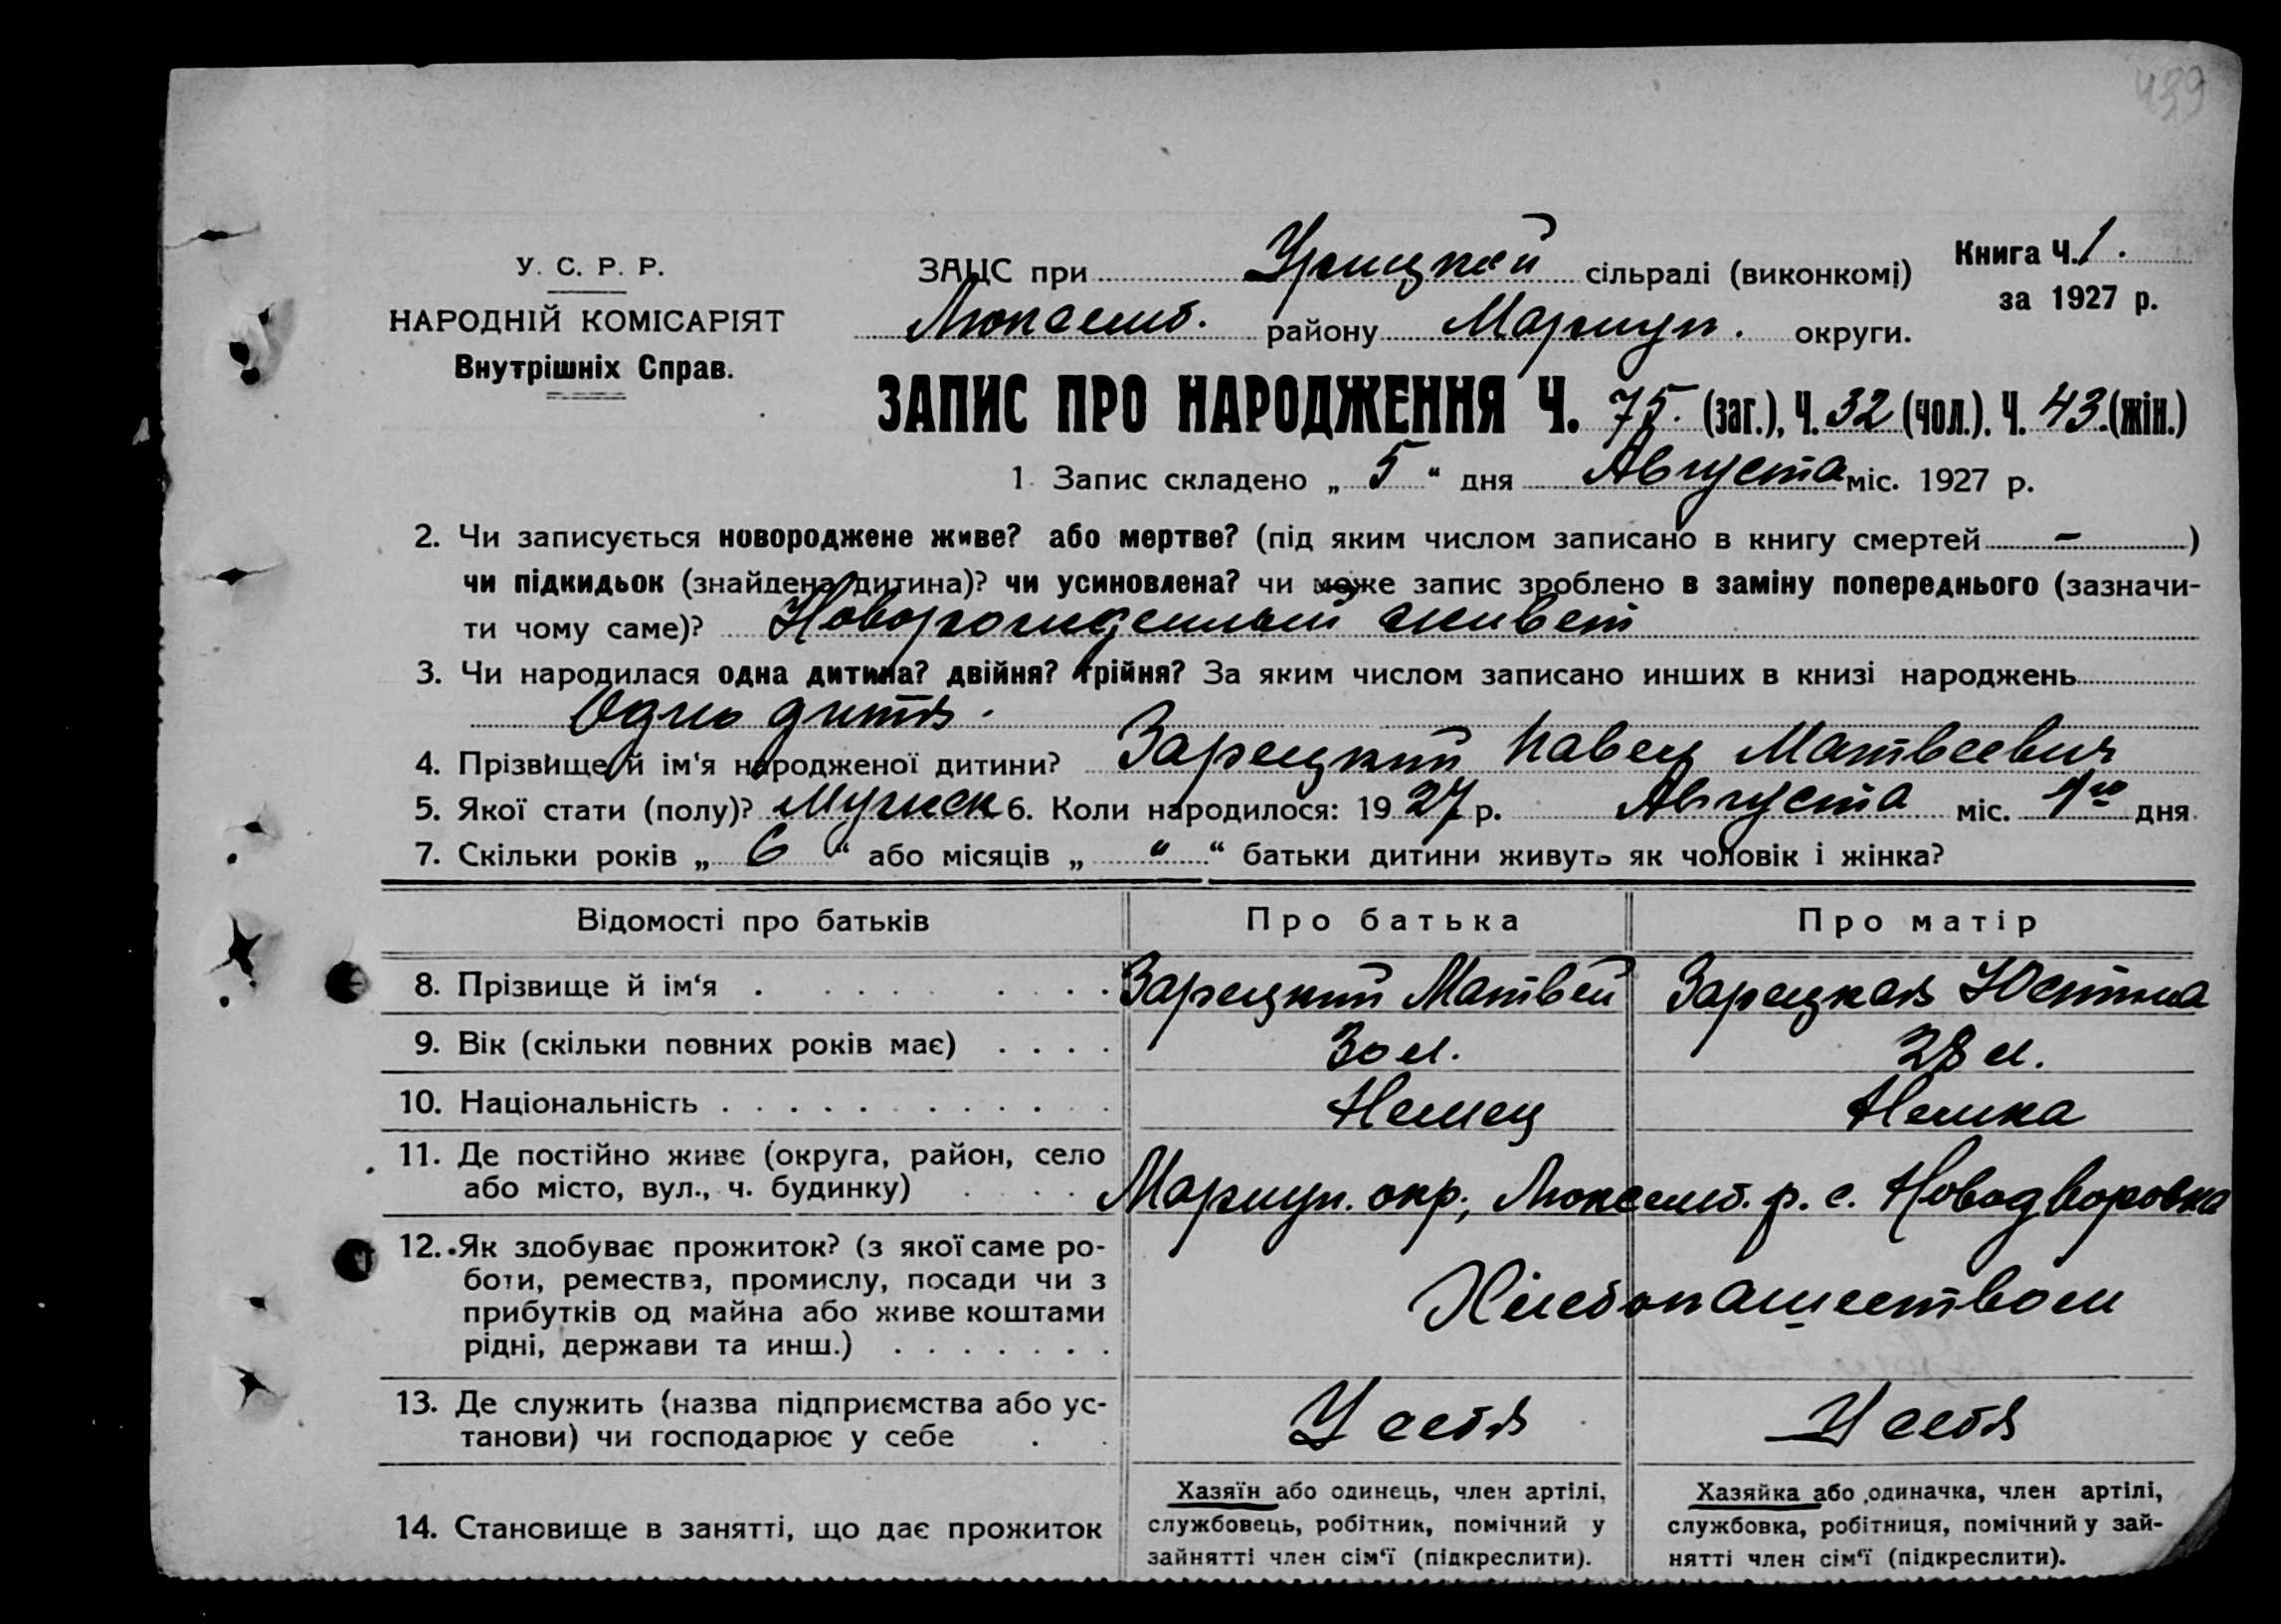 439
У. С. Р. Р.
НАРОДНІЙ КОМІСАРІЯТ
Внутрішніх Справ.
ЗАЦС при Урицкой сільраді (виконкомі)
Люксемб. району Мариуп. округи.
Книга Ч. 1.
за 1927 р.
ЗАПИС ПРО НАРОДЖЕННЯ Ч. 75. (заг.), Ч. 32 (чол.). Ч. 43. (жін.)
1. Запис складено „ 5 “ дня Августа міс. 1927 р.
2. Чи записується новороджене живе? або мертве? (під яким числом записано в книгу смертей – )
чи підкидьок (знайдена дитина)? чи усиновлена? чи може запис зроблено в заміну попереднього (зазначи-
ти чому саме)? Новорожденный живет
3. Чи народилася одна дитина? двійня? трійня? За яким числом записано инших в книзі народжень
Одно дитя.
4. Прізвище й ім‘я народженої дитини? Зарецкий Павел Матвеевич
5. Якої стати (полу)? Мужск 6. Коли народилося: 19 27 р. Августа міс. 1го дня
7. Скільки років „ 6 “ або місяців „ " “ батьки дитини живуть як чоловік і жінка?
Відомості про батьків Про батька Про матір
8. Прізвище й ім‘я . Зарецкий Матвей Зарецкая Юстина
9. Вік (скільки повних років має) . . . . 30 л. 28 л.
10. Національність . . . . . . . . . . . . . Немец Немка
11. Де постійно живе (округа, район, село
або місто, вул., ч. будинку) . . . . Мариуп. окр., Люксемб. р. с. Новодворовка
12. Як здобуває прожиток? (з якої саме ро-
боти, ремества, промислу, посади чи з
прибутків од майна або живе коштами
рідні, держави та инш.) . . . . . . . Хлебопашеством
13. Де служить (назва підприємства або ус-
танови) чи господарює у себе . . У себя У себя
14. Становище в занятті, що дає прожиток
Хазяїн або одинець, член артілі,
службовець, робітник, помічний у
зайнятті член сім‘ї (підкреслити).
Хазяйка або одиначка, член артілі,
службовка, робітниця, помічний у зай-
нятті член сім‘ї (підкреслити).